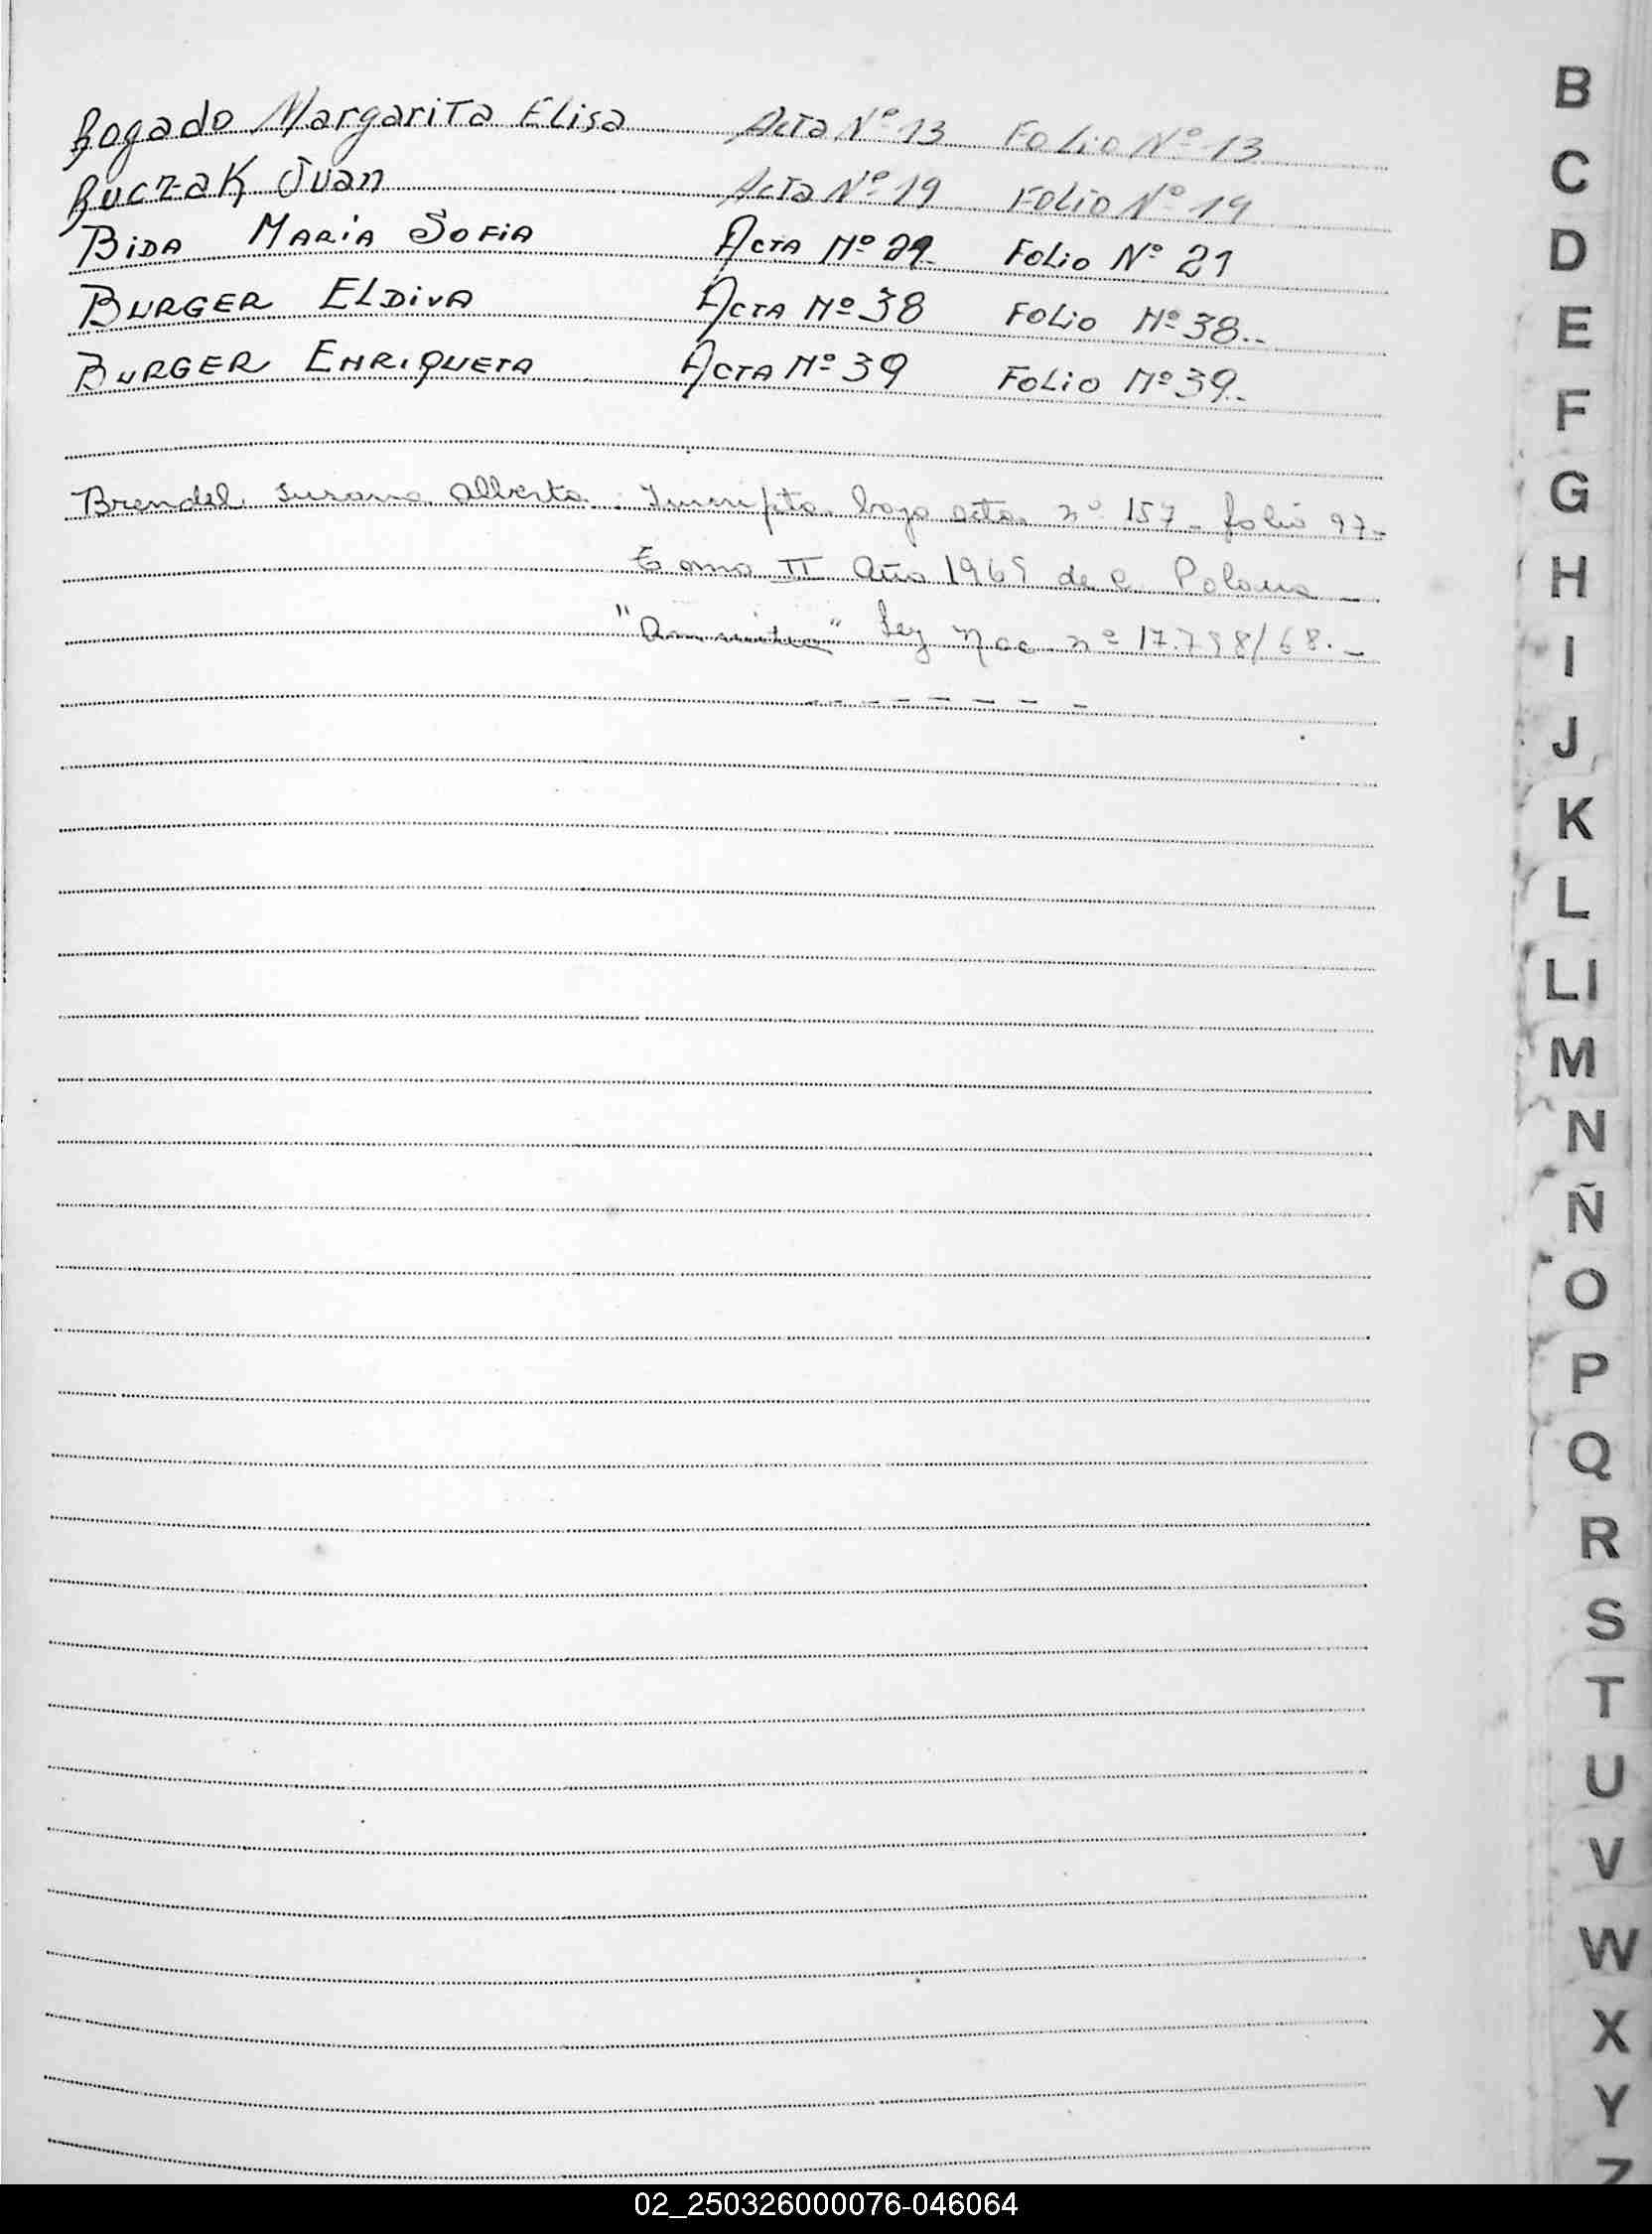 Bogado Margarita Elisa Acta Nº 13 Folio Nº 13
Buczak Juan Acta Nº 19 Folio Nº 19
BiDA MARiA SOFiA ACTA Nº 21 FOLio Nº 21
BURGER ELDivA ACTA Nº 38 FOLio Nº 38..
BURGER ENRiQUETA ACTA Nº 39 FOLio Nº 39..
Brendel Susana Alberta. Inscripta bajo acta nº 157 - folio 97-
Tomo II Año 1969 de
"Amnistia" Ley Nac. nº 17.798/68.-
B
C
D
E
F
G
H
I
J
K
L
Ll
M
N
Ñ
O
P
Q
R
S
T
U
V
W
X
Y
Z
02_250326000076-046064